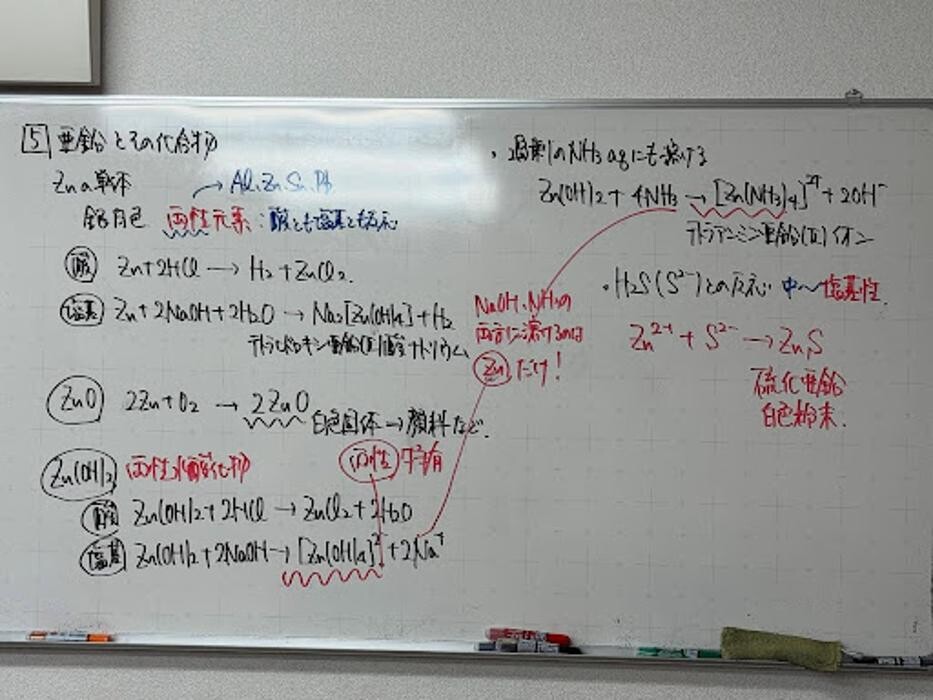 5 亜鉛とその化合物
Znの単体
→ Al, Zn, Sn, Pb
銀白色 両性元素:酸とも塩基とも反応
酸 Zn+2HCl → H2+ZnCl2.
塩基 Zn+2NaOH+2H2O → Na2[Zn(OH)4]+H2
テトラヒドロキシド亜鉛(II)酸ナトリウム
ZnO 2Zn+O2 → 2ZnO
白色固体→顔料など.
Zn(OH)2 両性水酸化物
両性
酸 Zn(OH)2+2HCl → ZnCl2+2H2O
塩基 Zn(OH)2+2NaOH → [Zn(OH)4]2-+2Na+
NaOH, NH3の
両方に溶けるのは
Znだけ!
・過剰のNH3aqにも溶ける
Zn(OH)2+4NH3 → [Zn(NH3)4]2++2OH-
テトラアンミン亜鉛(II)イオン
・H2S(S2-)との反応 中〜塩基性.
Zn2++S2- → ZnS
硫化亜鉛
白色粉末.